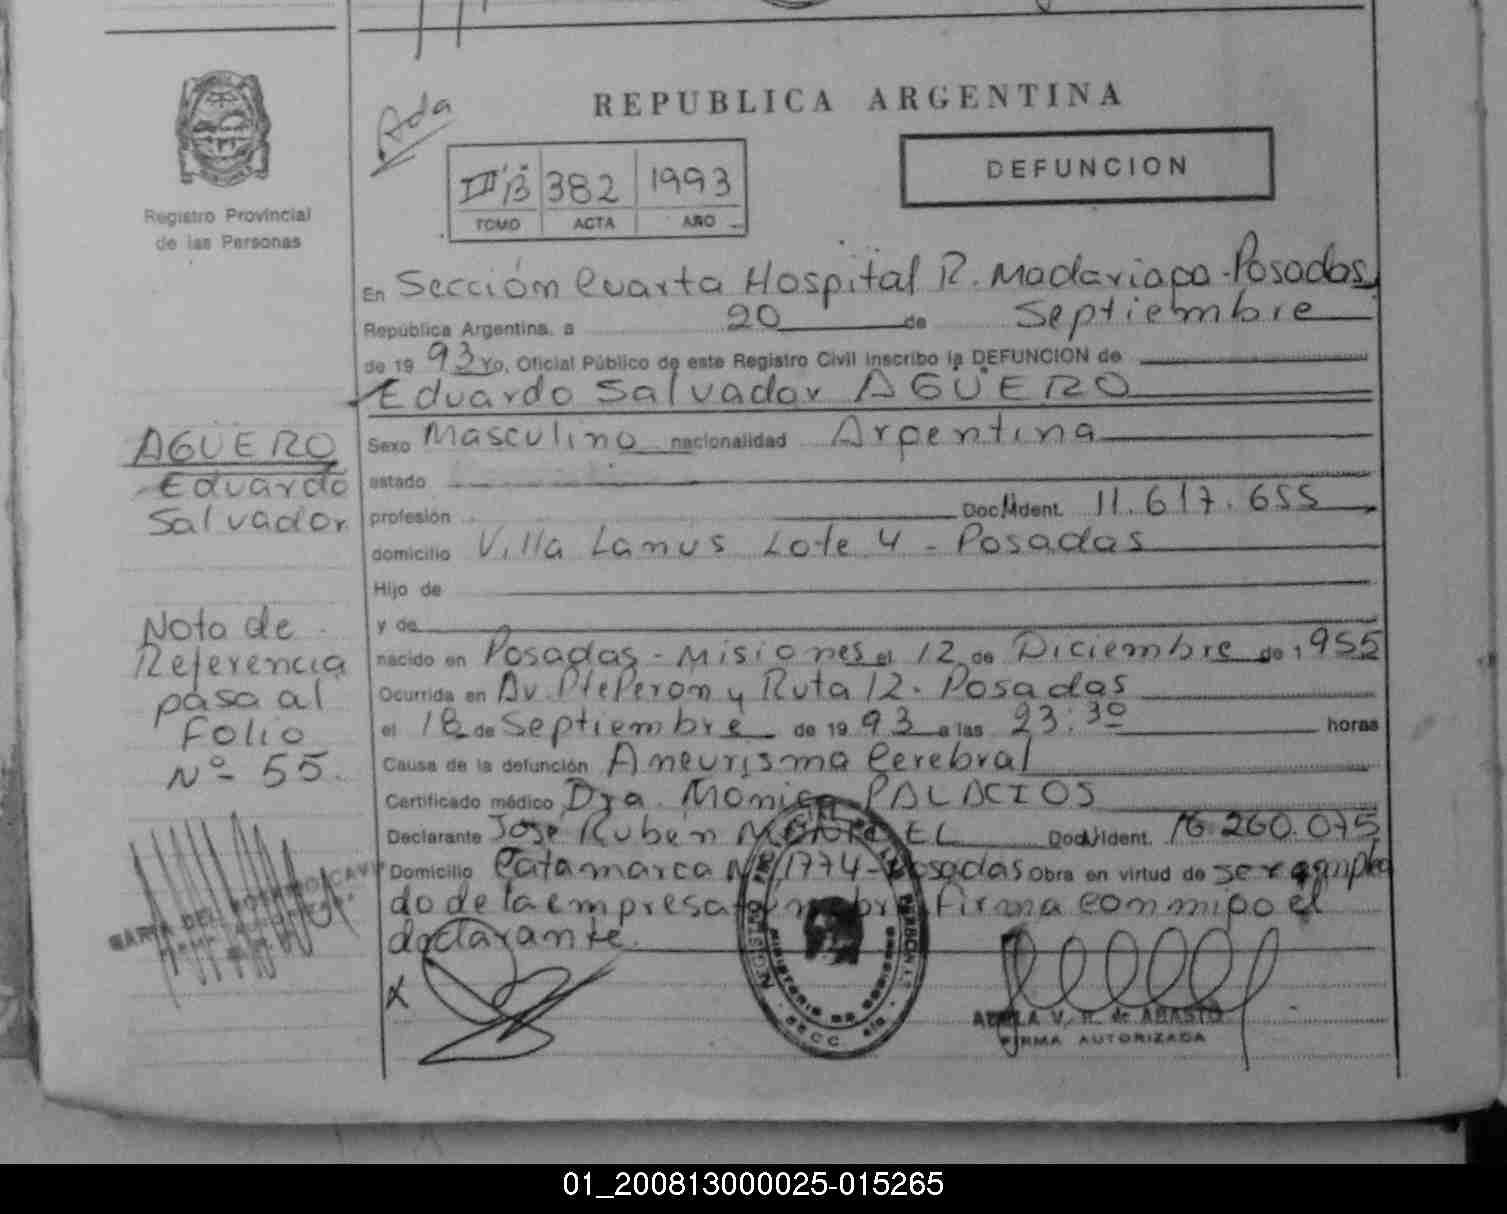 Ada
REPUBLICA ARGENTINA
DEFUNCION
III B 382 1993
TOMO ACTA AÑO
Registro Provincial
de las Personas
En Sección Cuarta Hospital R. Madariaga - Posadas
República Argentina, a 20 de Septiembre
de 19 93 Yo, Oficial Público de este Registro Civil inscribo la DEFUNCION de
Eduardo Salvador AGÜERO
AGÜERO
Eduardo
Salvador
Sexo Masculino nacionalidad Argentina
estado
profesión Doc. Ident. 11.617.655
domicilio Villa Lanus Lote 4 - Posadas
Hijo de
y de
nacido en Posadas - Misiones el 12 de Diciembre de 1955
Ocurrida en Av. Pte Peron y Ruta 12. Posadas
el 18 de Septiembre de 19 93 a las 23:30 horas
Causa de la defunción Aneurisma Cerebral
Certificado médico Dra. Monica PALACIOS
Declarante Jose Ruben Doc. Ident. 16.260.075
Domicilio Catamarca Nº 1774 - Posadas Obra en virtud de ser emplea
do de la empresa fúnebre firma conmigo el
declarante.
Nota de
Referencia
pasa al
Folio
Nº 55.
X
REGISTRO PROVINCIAL DE LAS PERSONAS
MINISTERIO DE GOBIERNO
SECC. 4ta
ADELA V. R. de ABASTO
FIRMA AUTORIZADA
01_200813000025-015265